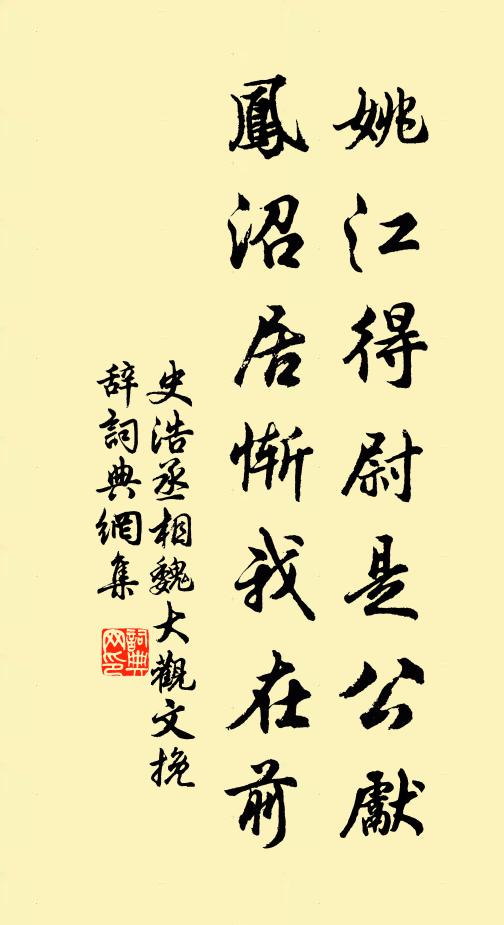 姚江得尉是公獻
鳳沼居慚我在前
史浩丞相魏大觀文挽
辞詞典網集
詞典网印